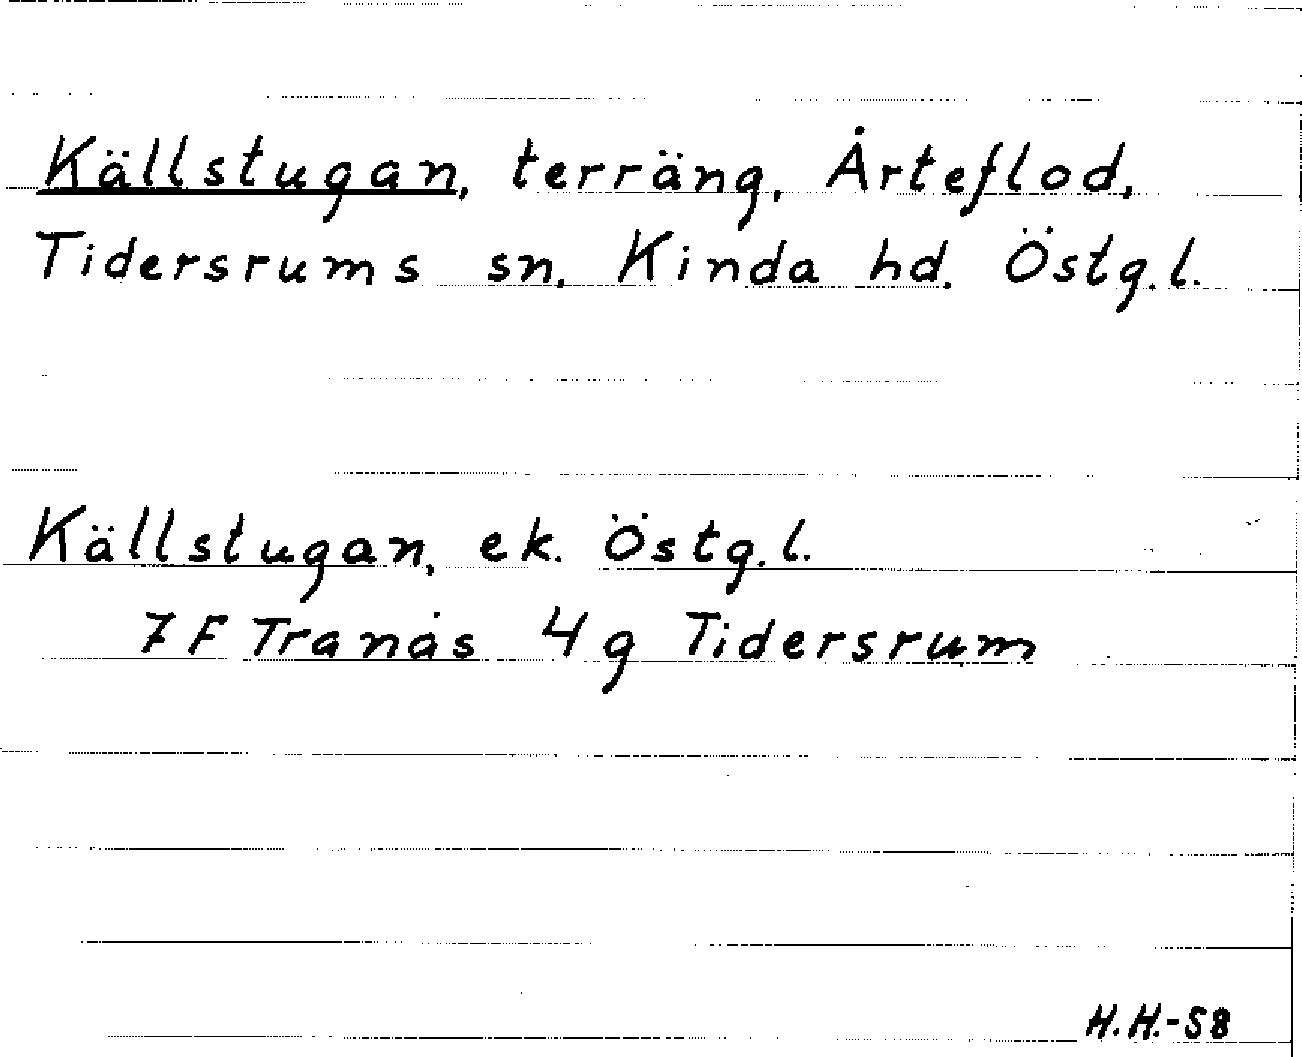 Källstugan, terräng, Årteflod,
Tidersrums sn, Kinda hd. Östg.l.
Källstugan, ek. Östg.l.
7 F Tranås 4 g Tidersrum
H.H.-58